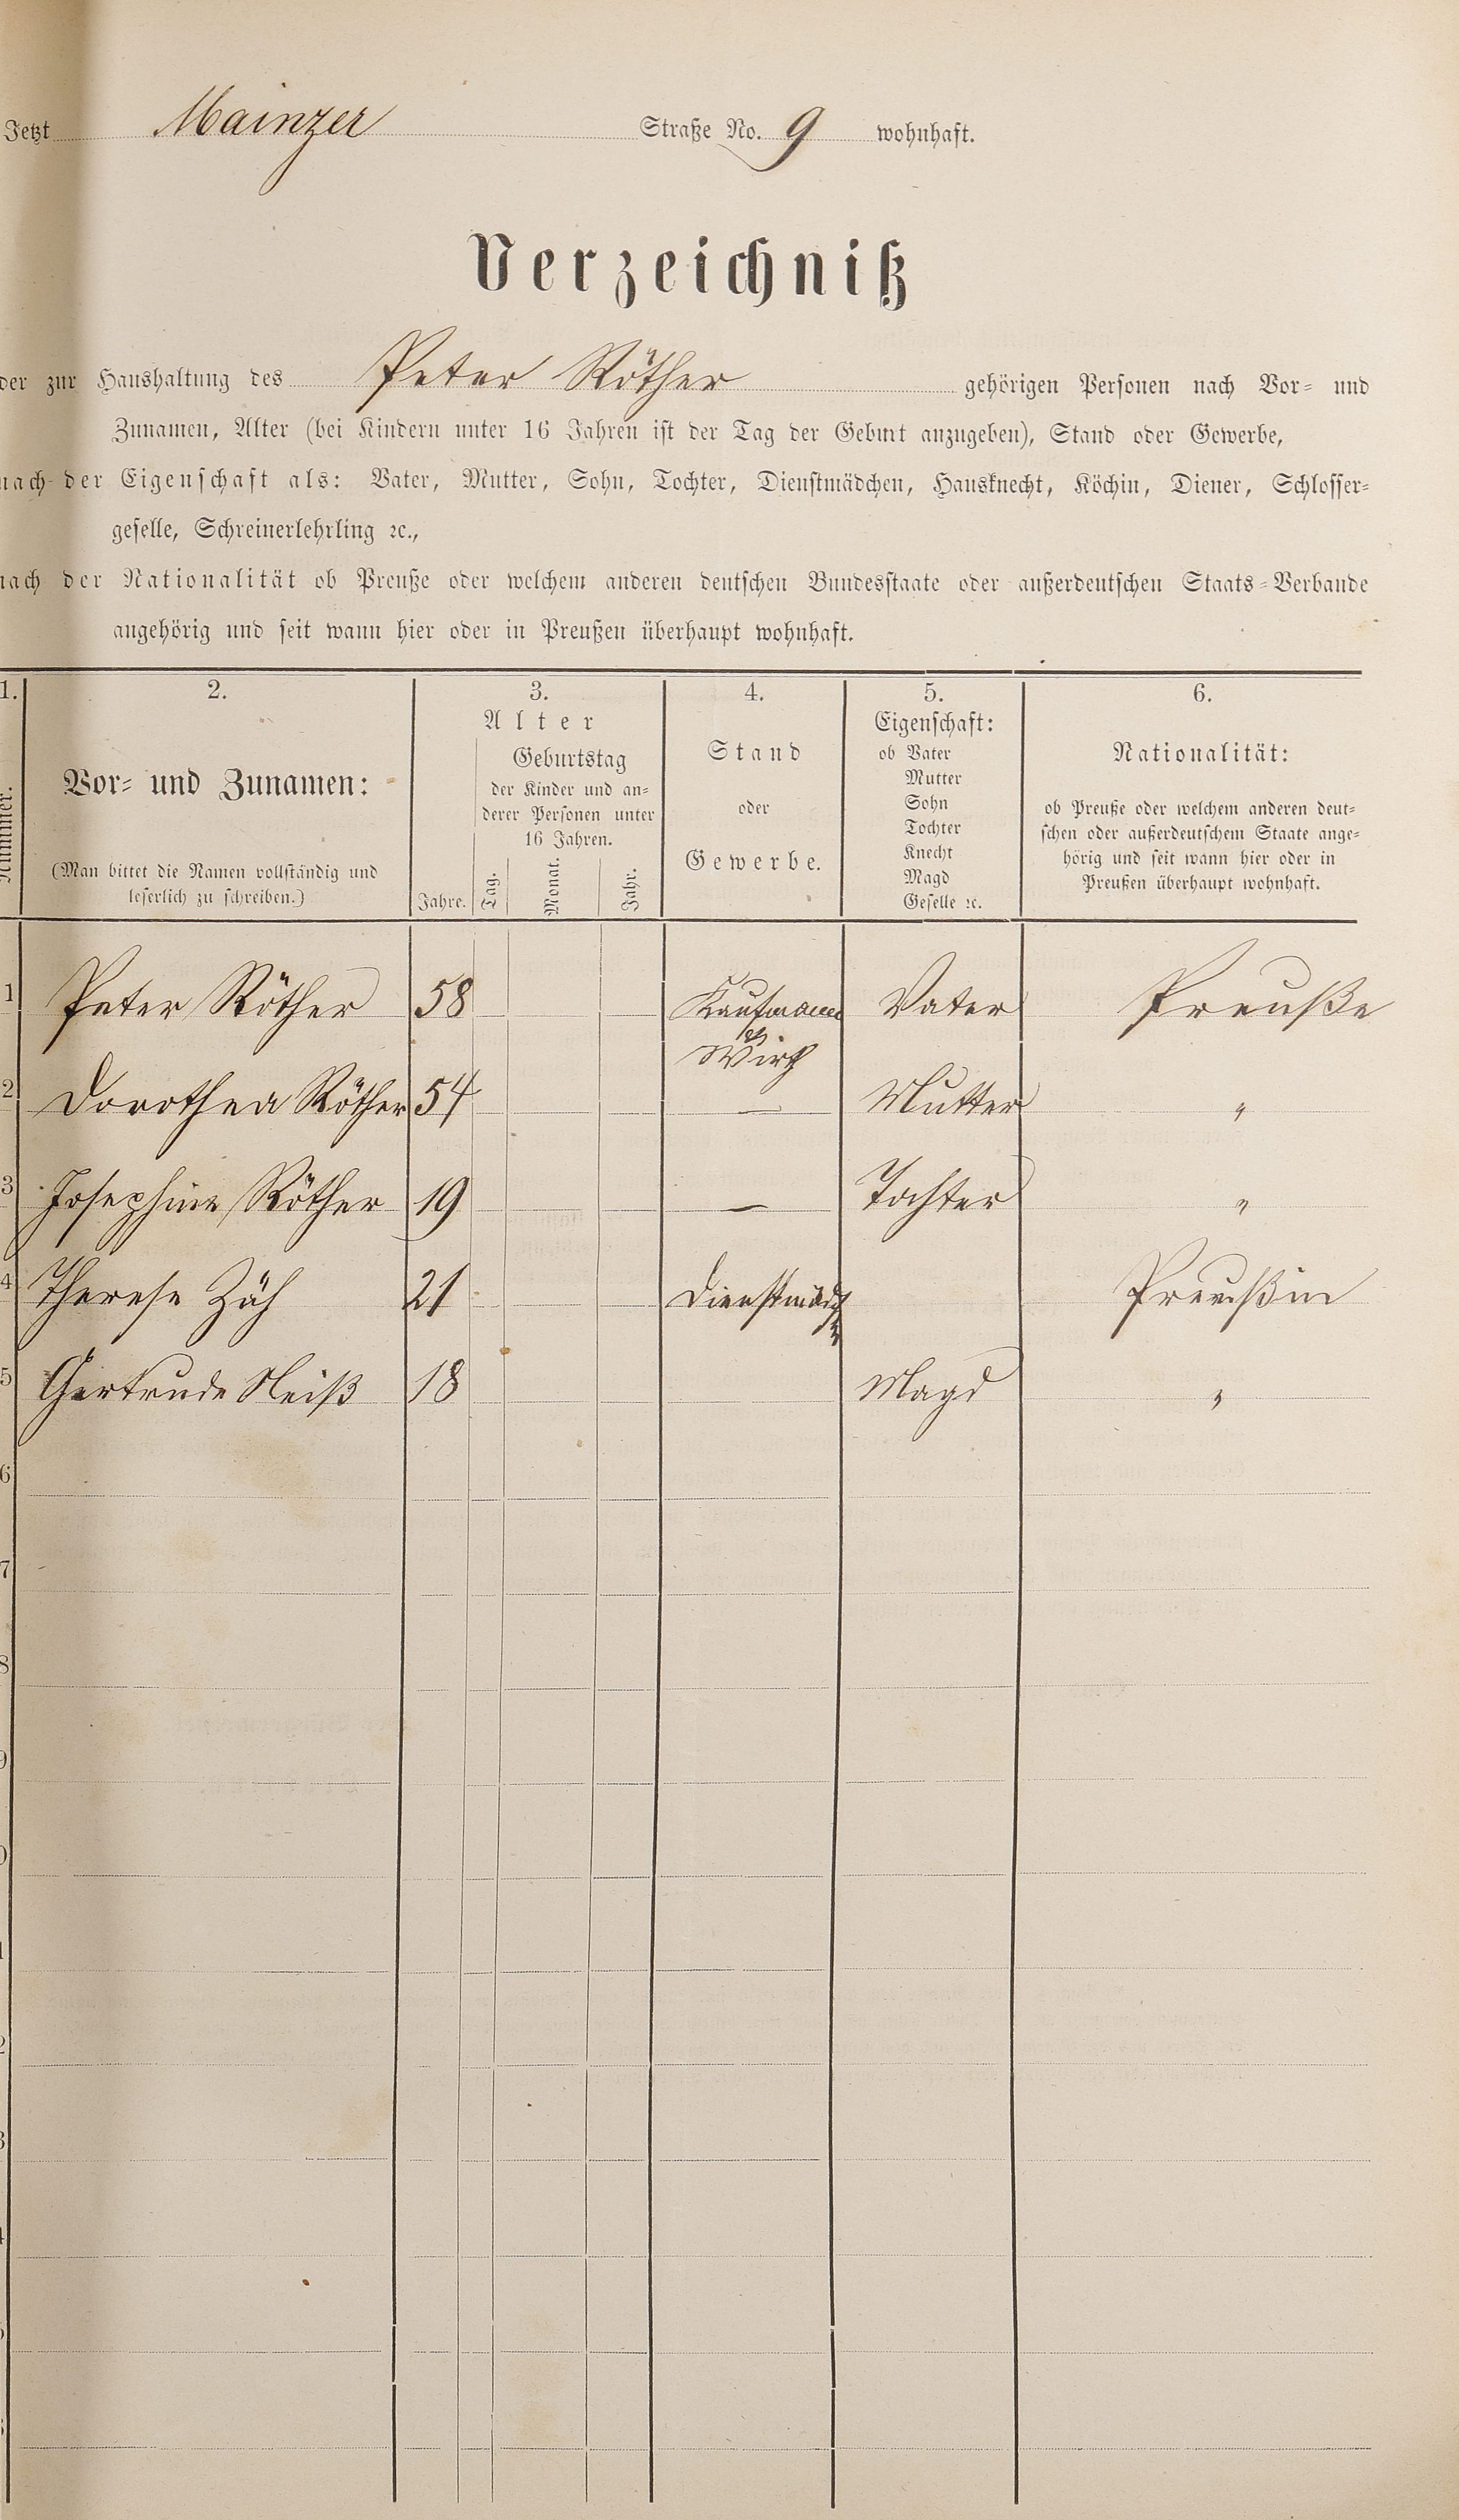 Jetzt Mainzer Straße No. 9 wohnhaft.
Verzeichniß
der zur Haushaltung des Peter Röther gehörigen Personen nach Vor- und
Zunamen, Alter (bei Kindern unter 16 Jahren ist der Tag der Geburt anzugeben), Stand oder Gewerbe,
nach der Eigenschaft als: Vater, Mutter, Sohn, Tochter, Dienstmädchen, Hausknecht, Köchin, Diener, Schlosser-
geselle, Schreinerlehrling ꝛc.,
nach der Nationalität ob Preuße oder welchem anderen deutschen Bundesstaate oder außerdeutschen Staats-Verbande
angehörig und seit wann hier oder in Preußen überhaupt wohnhaft.
1.
Nummer.
2.
Vor- und Zunamen:
(Man bittet die Namen vollständig und
leserlich zu schreiben.)
3.
Alter
Jahre.
Geburtstag
der Kinder und an-
derer Personen unter
16 Jahren.
Tag. Monat. Jahr.
4.
Stand
oder
Gewerbe.
5.
Eigenschaft:
ob Vater
Mutter
Sohn
Tochter
Knecht
Magd
Geselle ꝛc.
6.
Nationalität:
ob Preuße oder welchem anderen deut-
schen oder außerdeutschem Staate ange-
hörig und seit wann hier oder in
Preußen überhaupt wohnhaft.
1 Peter Röther 58 Kaufmann Vater Preuße
& Wirth
2 Dorothea Röther 54 — Mutter "
3 Josephine Röther 19 — Tochter "
4 Therese Zäh 21 Preußin
5 Gertrude 18 Magd "
6
7
8
9